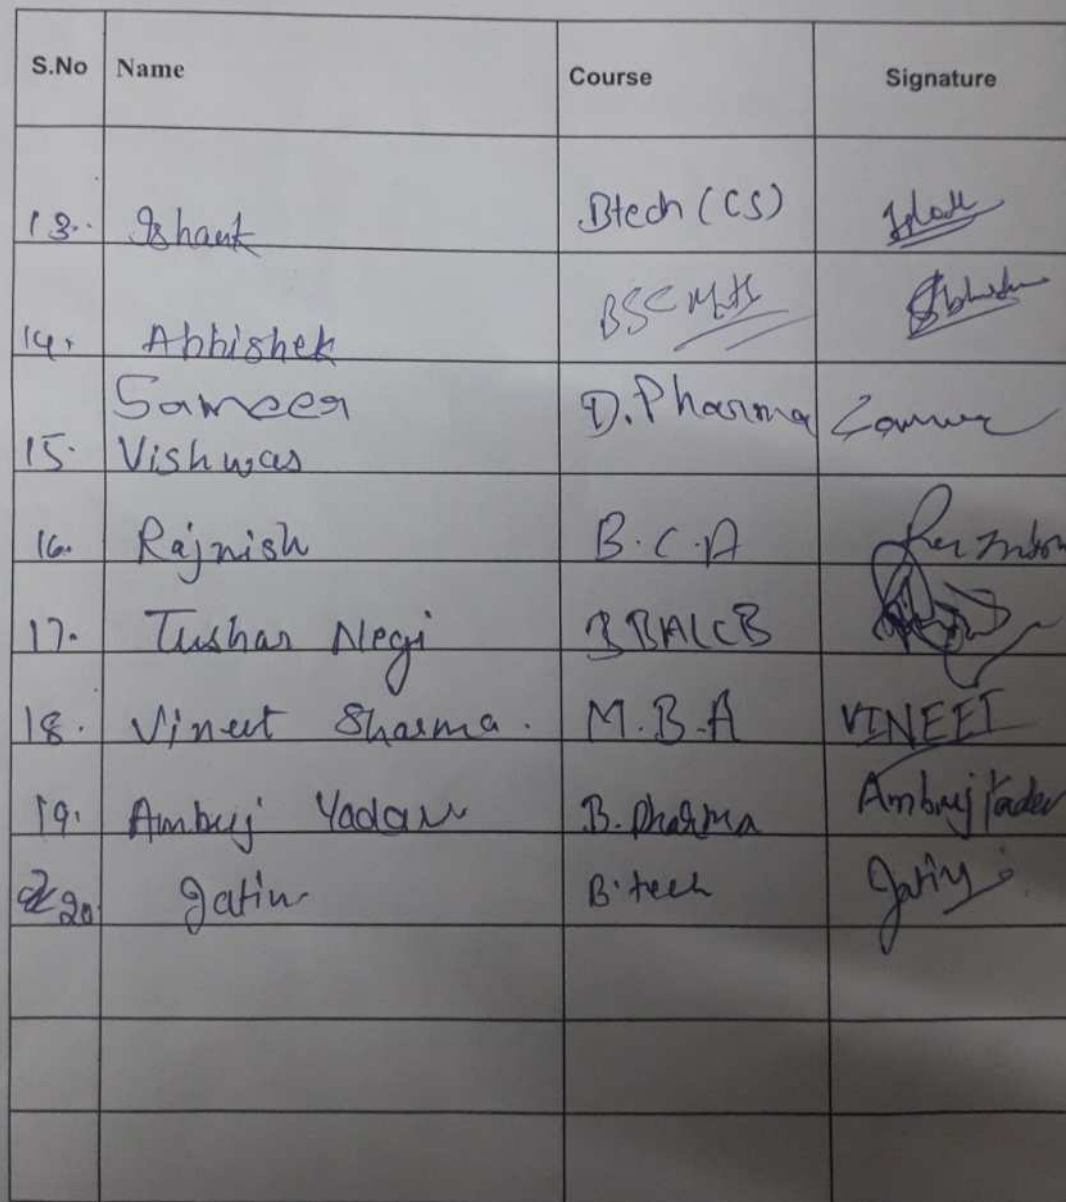 S.No Name Course Signature
13. Ishant Btech (CS)
14. Abhishek BSC
Sameer D.Pharma
15. Vishwas
16. Rajnish B.C.A
17. Tushar Negi
18. Vineet Sharma. M.B.A VINEET
19. Ambuj Yadav B.Pharma Ambuj Yadav
20 Jatin B.tech Jatin